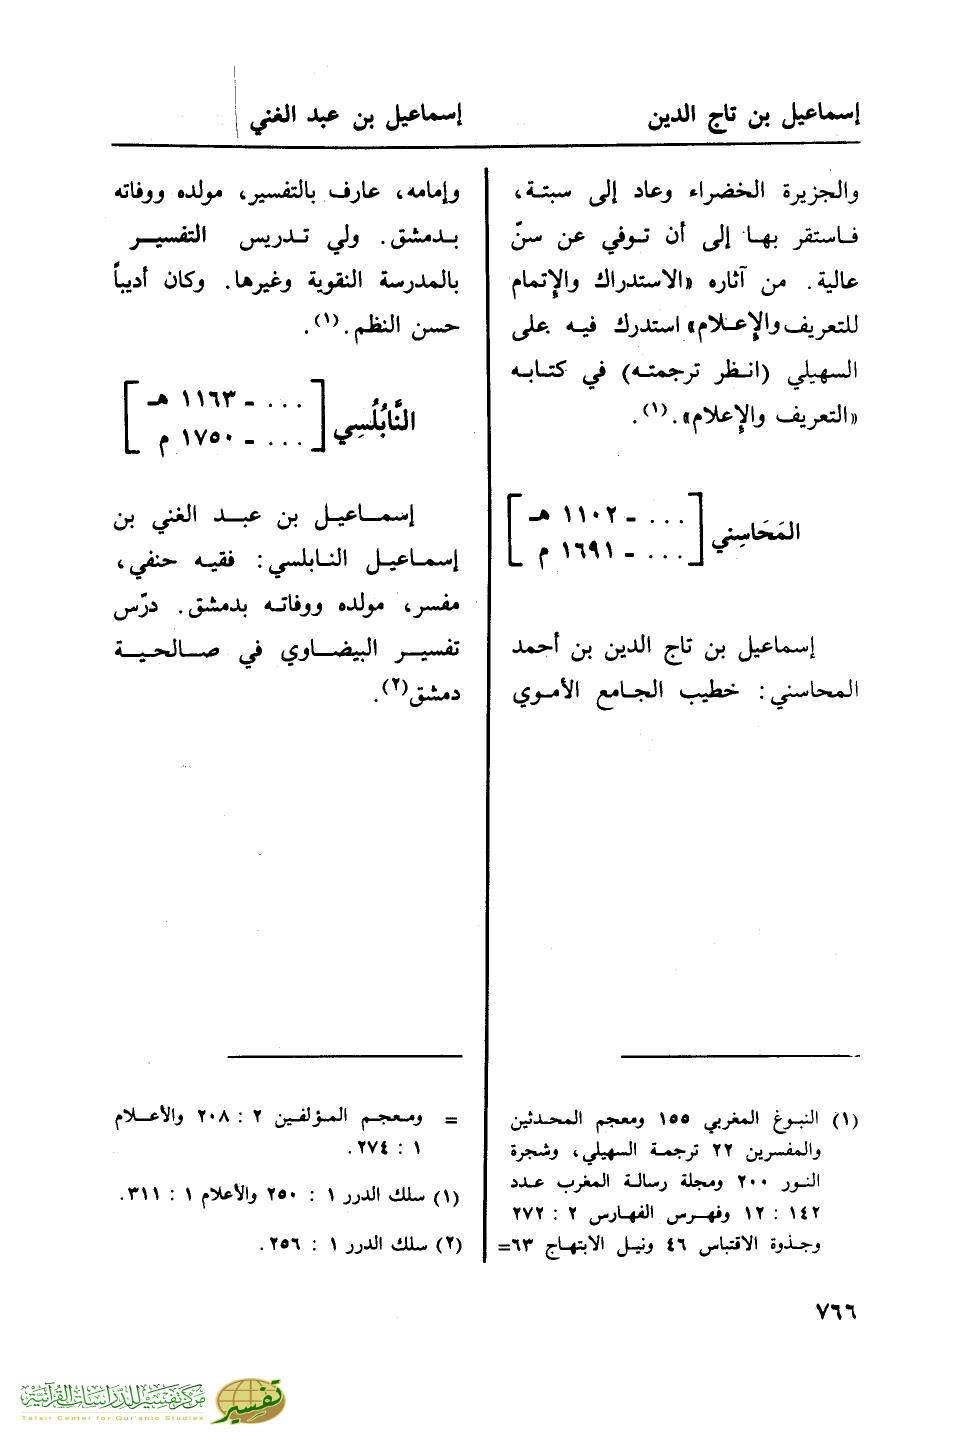 إسماعيل بن تاج الدين
إسماعيل بن عبد الغني
والجزيرة الخضراء وعاد إلى سبتة،
فاستقر بها إلى أن توفي عن سنّ
عالية. من آثاره «الاستدراك والإتمام
للتعريف والإعلام» استدرك فيه على
السهيلي (انظر ترجمته) في كتابه
«التعريف والإعلام».(١).
المَحَاسِني [... ـ ١١٠٢ هـ
... ـ ١٦٩١ م]
إسماعيل بن تاج الدين بن أحمد
المحاسني: خطيب الجامع الأموي
وإمامه، عارف بالتفسير، مولده ووفاته
بدمشق. ولي تدريس التفسير
بالمدرسة النقوية وغيرها. وكان أديباً
حسن النظم.(١).
النَّابُلُسِي [... ـ ١١٦٣ هـ
... ـ ١٧٥٠ م]
إسماعيل بن عبد الغني بن
إسماعيل النابلسي: فقيه حنفي،
مفسر، مولده ووفاته بدمشق. درّس
تفسير البيضاوي في صالحية
دمشق(٢).
(١) النبوغ المغربي ١٥٥ ومعجم المحدثين
والمفسرين ٢٢ ترجمة السهيلي، وشجرة
النور ٢٠٠ ومجلة رسالة المغرب عدد
١٤٢ : ١٢ وفهرس الفهارس ٢ : ٢٧٢
وجذوة الاقتباس ٤٦ ونيل الابتهاج ٦٣=
= ومعجم المؤلفين ٢ : ٢٠٨ والأعلام
١ : ٢٧٤.
(١) سلك الدرر ١ : ٢٥٠ والأعلام ١ : ٣١١.
(٢) سلك الدرر ١ : ٢٥٦.
٧٦٦
مركز تفسير للدراسات القرآنية
Tafsir Center for Qur'anic Studies
تفسير